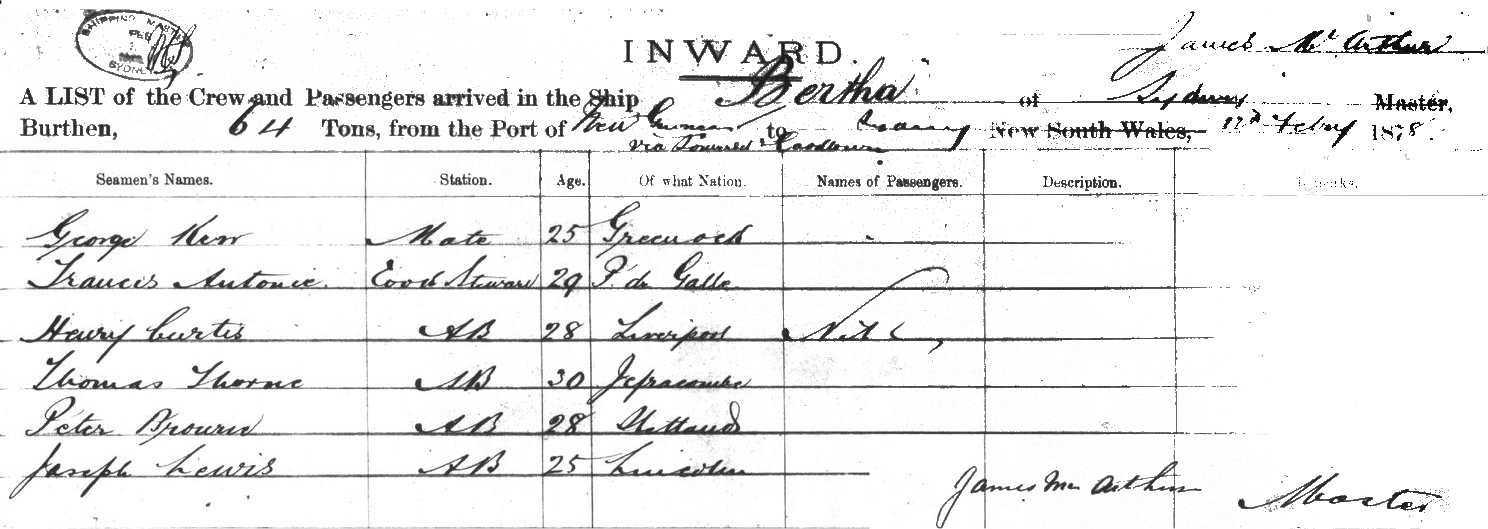 SHIPPING MASTER
FEB
SYDNEY
INWARD.
James Mc Arthur
A LIST of the Crew and Passengers arrived in the Ship Bertha of Sydney Master,
Burthen, 64 Tons, from the Port of New Guinea to New South Wales, 12th Feby 1878.
via Somerset & Cooktown
Seamen's Names. Station. Age. Of what Nation. Names of Passengers. Description. Remarks.
George Kerr Mate 25 Greenock
Francis Antonie. Cook Steward 29 P. de Galle
Henry Curtis AB 28 Liverpool Nil
Thomas Thorne AB 30 Ilfracombe
Peter Brown AB 28 Shetland
Joseph Lewis AB 25 Lincoln
James Mc Arthur Master